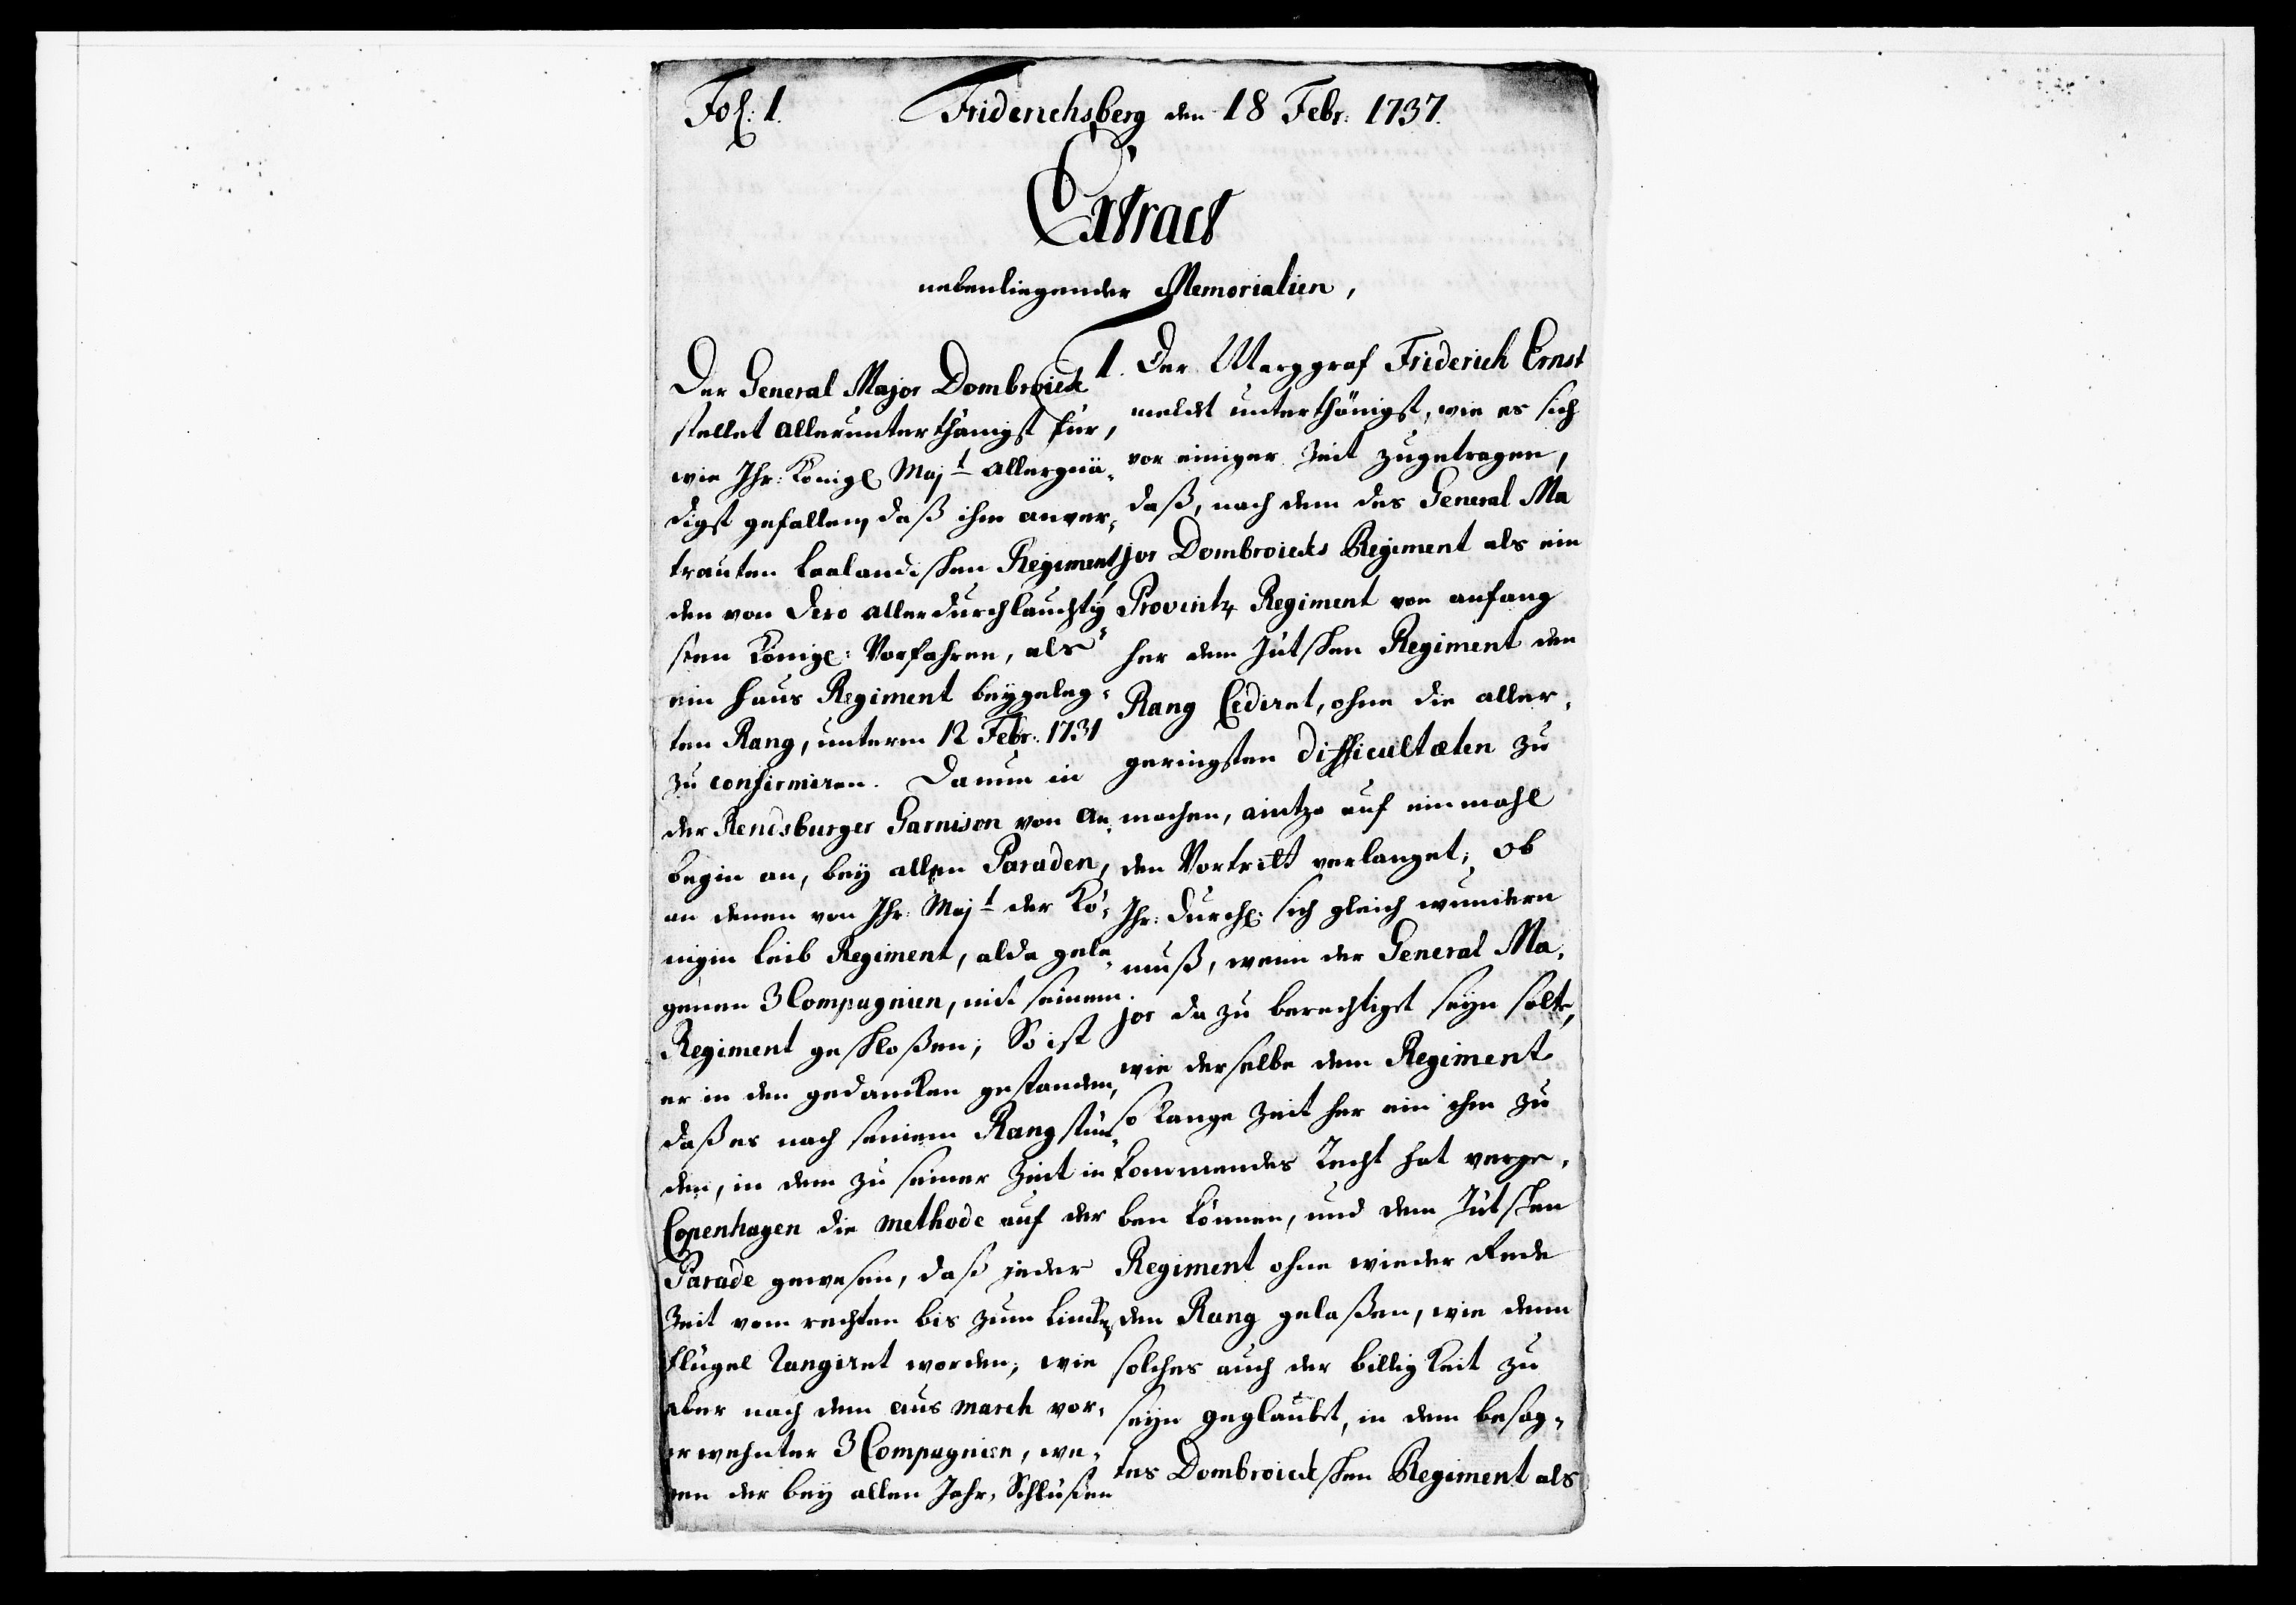 Fol: 1.
Friderichsberg den 18 Febr: 1737.
Extract
nebenliegender Memorialien,
Der General Major Dombroick
stellet allerunterthänigst für,
wie Ihr: Königl Maj.t allergnä-
digst gefallen, daß ihm anver-
trauten Laalandischen Regiment,
den von Dero allerdurchlauchtig-
sten Königl: Vorfahren, als
ein Haus Regiment beygeleg-
ten Rang, unterm 12 Febr: 1731
zu confirmiren. Da nun in
der Rendsburger Garnison von An-
begin an, bey allen Paraden,
an denen von Ihr: Maj.t der Kö-
nigin Leib Regiment, alda gele-
genen 3 Compagnien, mit seinem
Regiment geschloßen; So ist
er in den gedancken gestanden,
daß es nach seinem Rang stün-
den, in dem zu seiner Zeit in
Copenhagen die methode auf der
Parade gewesen, daß jeder
Zeit vom rechten bis zum lincken
Flügel Rangiret worden; wie
aber nach dem aus march vor-
erwehnter 3 Compagnien, we-
gen der bey allen Jahr-Schlüßen
1. Der Marggraf Friderich Ernst
meldet unterthänigst, wie es sich
vor einiger Zeit zugetragen,
daß, nach dem des General Ma
jor Dombroicks Regiment als ein
Provintz Regiment von anfang
her dem Jütschen Regiment den
Rang Cediret, ohne die aller-
geringsten difficultæten zu
machen, aintzo auf einmahl
den Vortritt verlanget; ob
Ihr: Durchl: sich gleich wundern
muß, wenn der General Ma-
jor da zu berechtiget seyn solte,
wie derselbe dem Regiment
so lange Zeit her ein ihm zu
kommendes Recht hat verge-
ben können, und dem Jütschen
Regiment ohne wieder Rede
den Rang gelaßen, wie denn
solches auch der billigkeit zu
seyn geglaubt, in dem besag-
tes Dombroickschen Regiment als